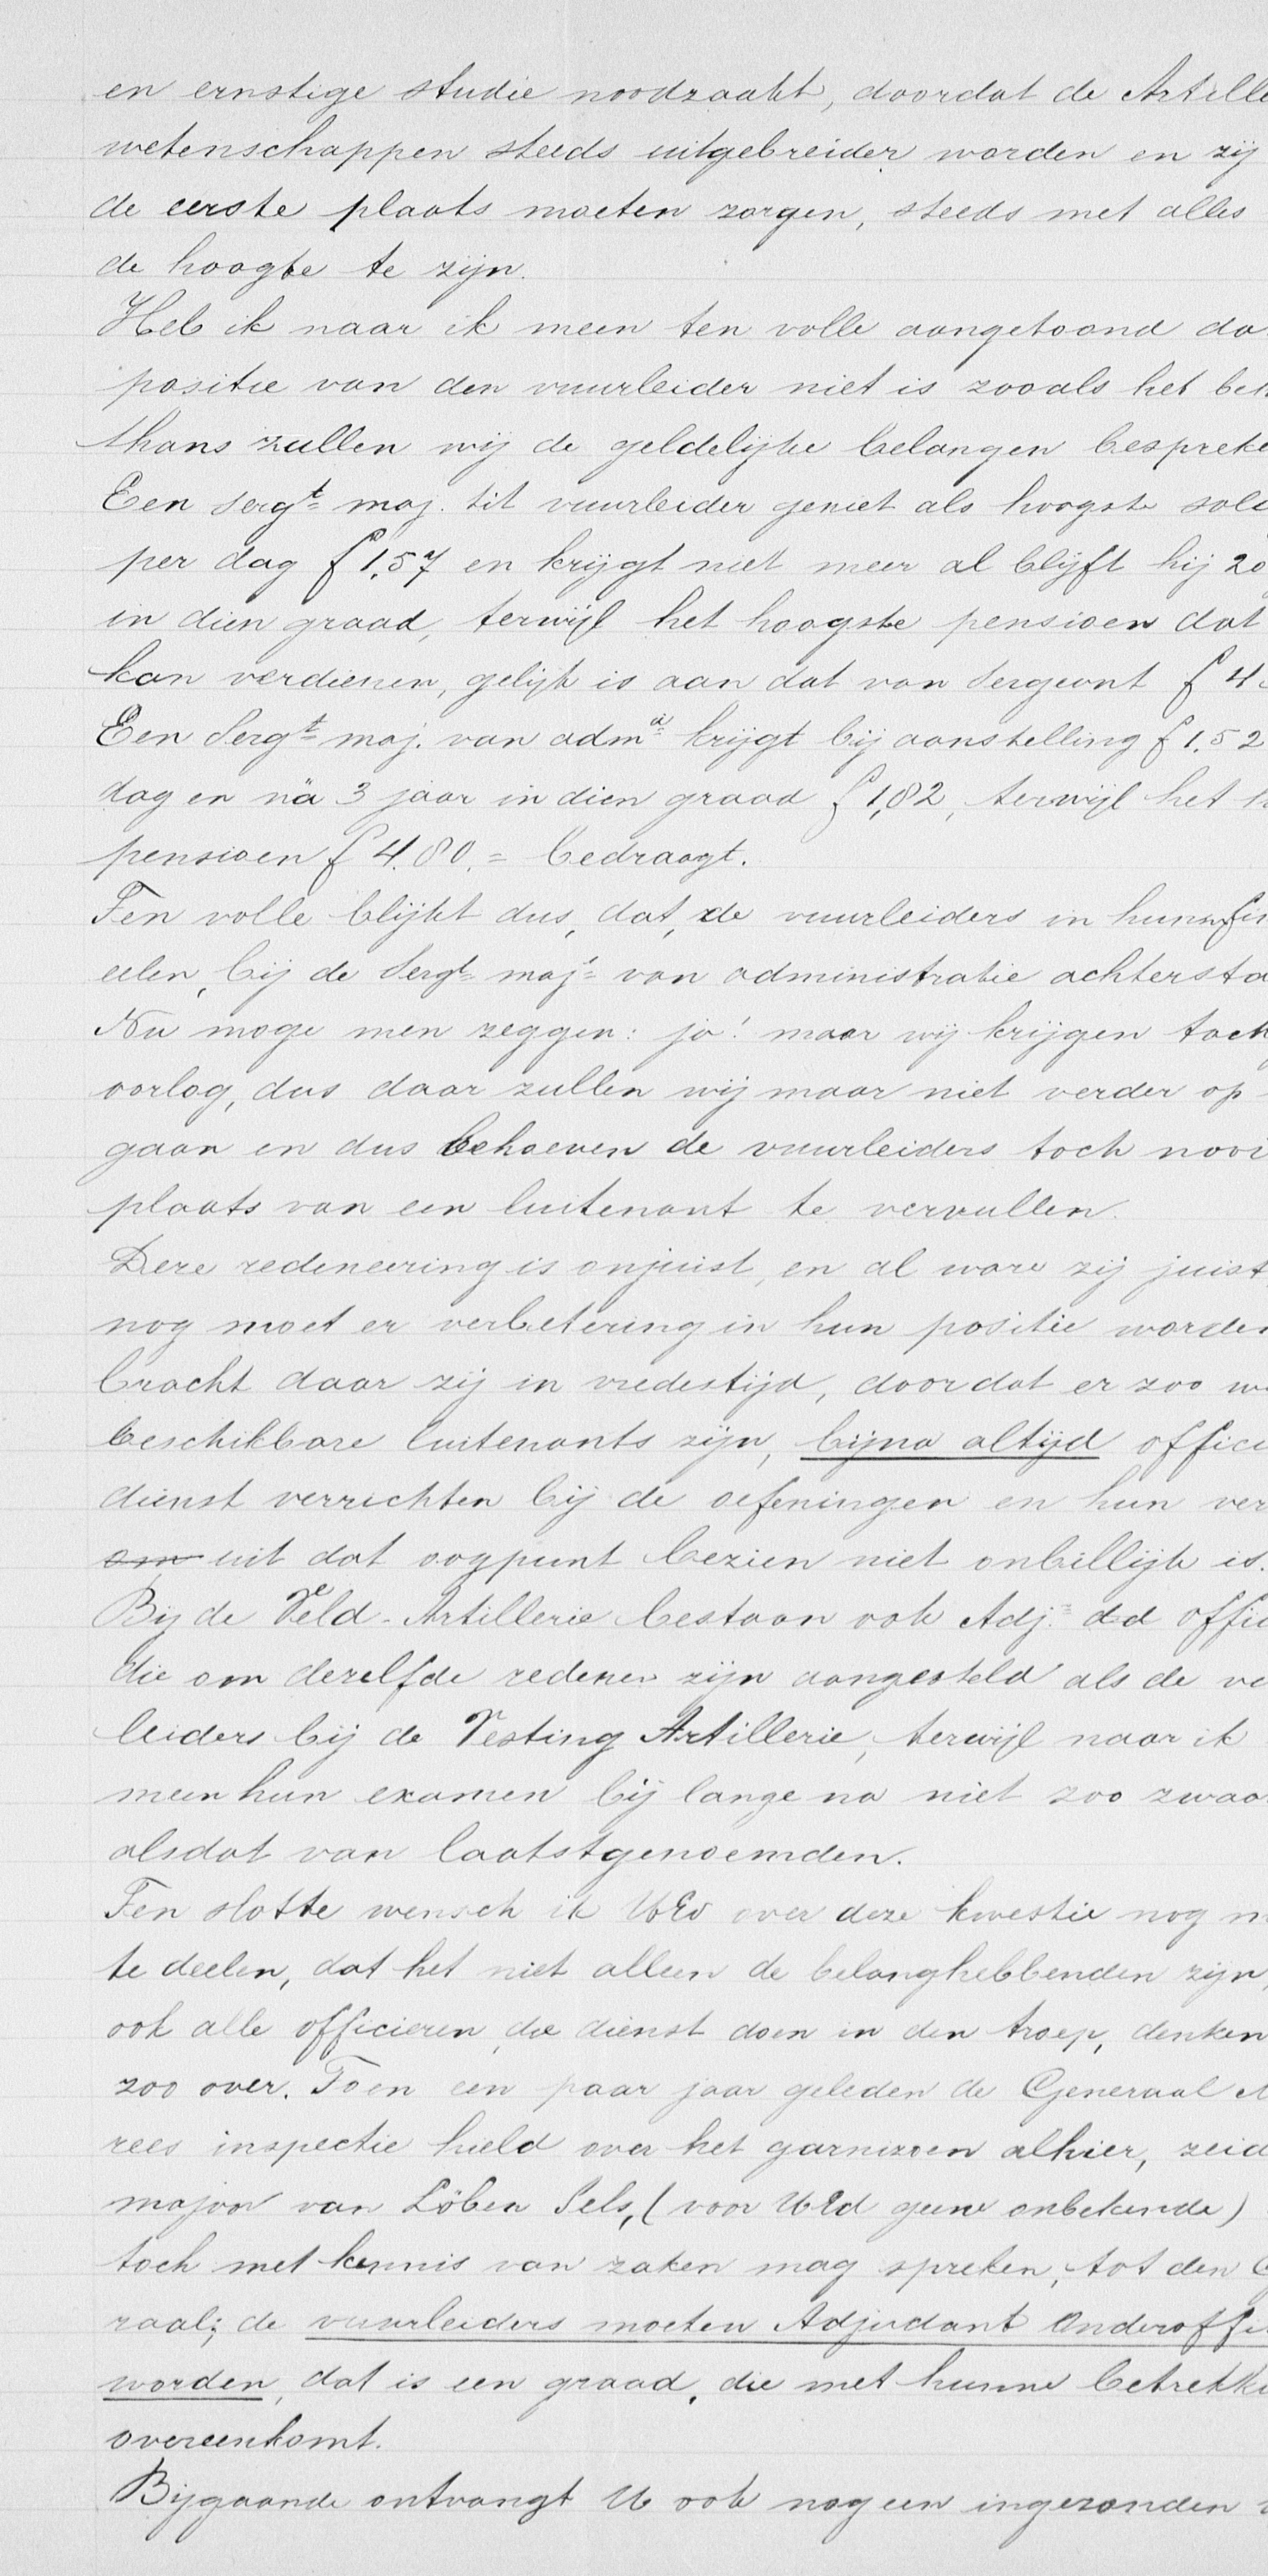 en ernstige studie noodzaakt, doordat de Artille
wetenschappen steeds uitgebreider worden en zij
de eerste plaats moeten zorgen, steeds met alles
de hoogte te zijn.
Heb ik naar ik meen ten volle aangetoond da
positie van den vuurleider niet is zooals het beh
thans zullen wij de geldelijke belangen bespreke
Een sergt maj. tit vuurleider geniet als hoogste sold
per dag f 1,57 en krijgt niet meer al blijft hij 20
in dien graad, terwijl het hoogste pensioen dat
kan verdienen, gelijk is aan dat van Sergeant f 4
Een Sergt maj. van adma krijgt bij aanstelling f 1.52
dag en nä 3 jaar in dien graad f 1,82, terwijl het h
pensioen f 4.80.= bedraagt.
Ten volle blijkt dus, dat, de vuurleiders in hunn fin
eelen, bij de Sergt majs van administratie achtersta
Nu moge men zeggen: ja! maar wij krijgen toch
oorlog, dus daar zullen wij maar niet verder op
gaan en dus behoeven de vuurleiders toch nooi
plaats van een luitenant te vervullen.
Deze redeneering is onjuist, en al ware zij juist
nog moet er verbetering in hun positie worden
bracht daar zij in vredestijd, doordat er zoo we
beschikbare luitenants zijn, bijna altijd offici
dienst verrichten bij de oefeningen en hun ver
om uit dat oogpunt bezien niet onbillijk is.
Bij de Veld-Artillerie bestaan ook Adj. dd offic
die om dezelfde redenen zijn aangesteld als de vu
leiders bij de Vesting Artillerie, terwijl naar ik
meen hun examen bij lange na niet zoo zwaar
alsdat van laatstgenoemden.
Ten slotte wensch ik UEd over deze kwestie nog m
te deelen, dat het niet alleen de belanghebbenden zijn,
ook alle officieren, die dienst doen in den troep, denken
zoo over. Toen een paar jaar geleden de Generaal
rees inspectie hield over het garnizoen alhier, zeid
majoor van Löben Sels, (voor UEd geene onbekende)
toch met kennis van zaken mag spreken, tot den G
raal; de vuurleiders moeten Adjudant Onderoffi
worden, dat is een graad, die met hunne betrekki
overeenkomt.
Bijgaande ontvangt U ook nog een ingezonden